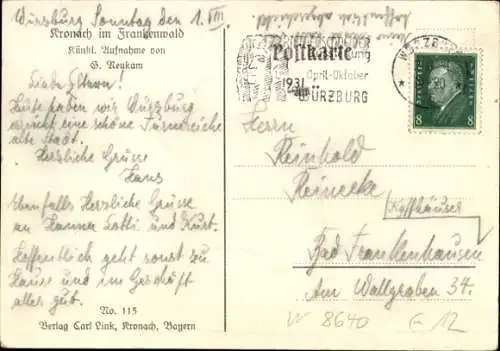 Würzburg Sonntag den 1. VIII.
Kronach im Frankenwald
Künstl. Aufnahme von
G. Neukam
Liebe Eltern!
Heute haben wir Würzburg
erreicht eine schöne Türmereiche
alte Stadt.
Herzliche Grüsse
Hans
Ebenfalls Herzliche Grüsse
an Hanna Lotti und Kurt.
Hoffentlich geht sonst zu
Hause und im Geschäft
alles gut.
No. 115
Verlag Carl Link, Kronach, Bayern
Postkarte
April-Oktober
1931
WÜRZBURG
WÜRZB
8 8
Herrn
Reinhold
Reinecke
Kyffhäuser
Bad Frankenhausen
Am Wallgraben 34.
W 8640 E 12